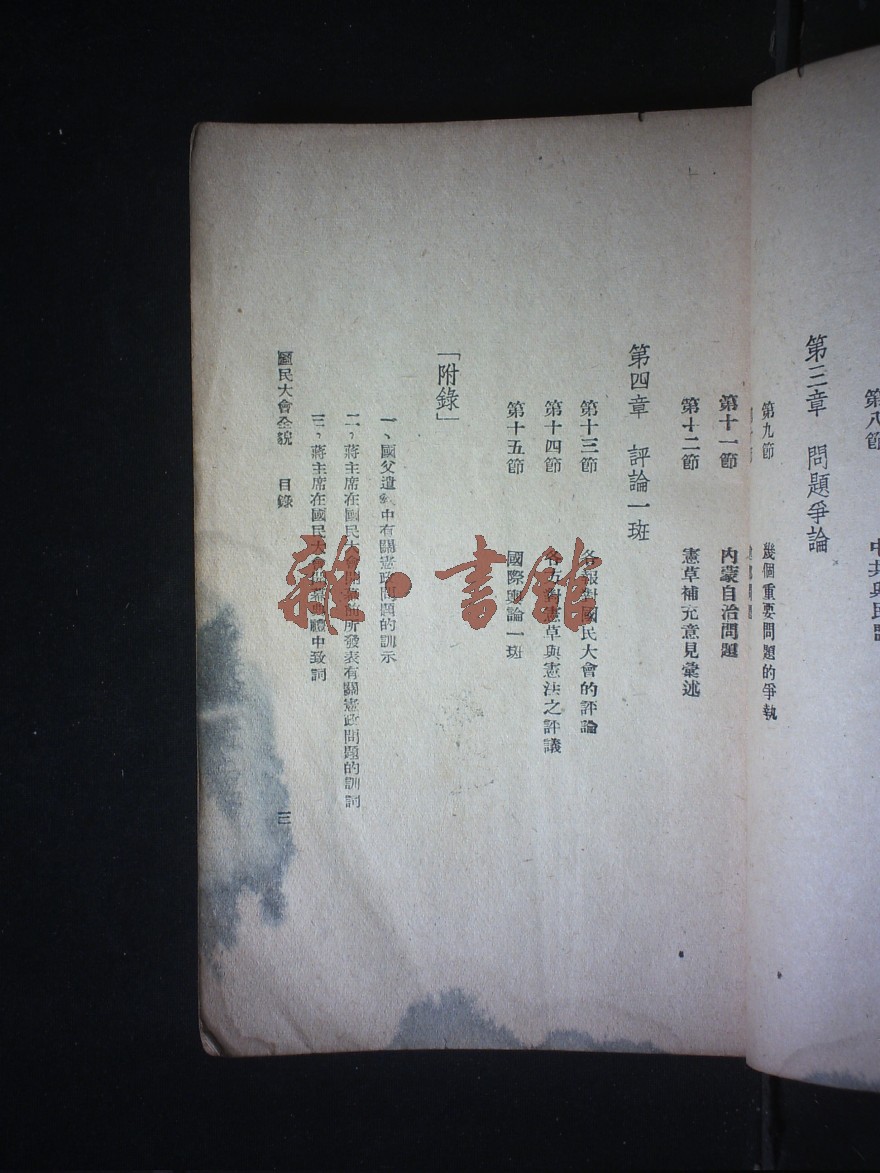 第八節 中共與民盟
第三章 問題爭論
第九節 幾個重要問題的爭執
第十一節 內蒙自治問題
第十二節 憲草補充意見彙述
第四章 評論一斑
第十三節 各報對國民大會的評論
第十四節 各方對憲草與憲法之評議
第十五節 國際輿論一斑
「附錄」
一、國父遺教中有關憲政問題的訓示
二、蔣主席在國民大會開幕前所發表有關憲政問題的訓詞
三、蔣主席在國民大會開幕典禮中致詞
國民大會全貌 目錄
三
雜·書館